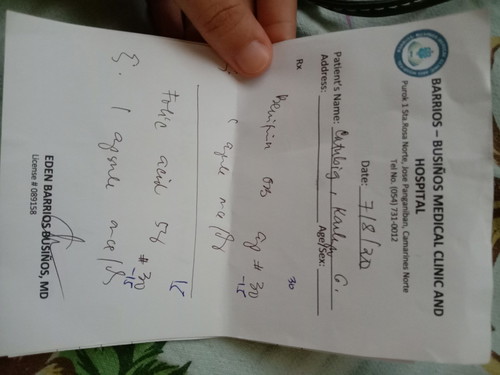 BARRIOS – BUSIÑOS MEDICAL CLINIC AND
HOSPITAL
Purok 1 Sta.Rosa Norte, Jose Panganiban, Camarines Norte
Tel No. (054) 731-0012
Date: 7/8/20
Patient's Name: G.
Address: Age/Sex:
Rx
30
cap # 30
-15
1 capsule once/day
Folic acid 5g # 30
-15
15
S. 1 capsule once/day
EDEN BARRIOS BUSIÑOS, MD
License # 089158